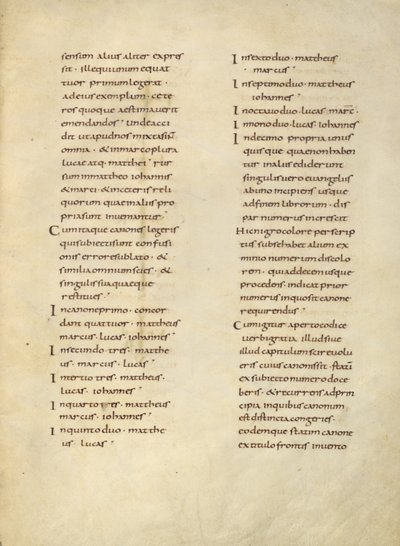 sensum alius aliter expres
sit · ille qui unum e quat
tuor primum legerat ·
ad eius exemplum · cete
ros quoque aestimaverit
emendandos · Unde acci
dit ut apud nos mixta sint
omnia · & in marco plura
lucae atq · matthei · rur
sum in mattheo iohannis
& marci · & in ceteris reli
quorum quae in aliis pro
pria sunt inveniantur ·
Cum itaque canones legeris
qui subiecti sunt confusi
onis errore sublato · &
similia omnium scies · &
singulis sua quaeque
restitues ·
In canone primo · concor
dant quattuor · mattheus
marcus · lucas · iohannes ·
In secundo tres · matthe
us · marcus · lucas ·
In tertio tres · mattheus ·
lucas · iohannes ·
In quarto tres · mattheus
marcus · iohannes ·
In quinto duo · matthe
us · lucas ·
In sexto duo · mattheus
marcus ·
In septimo duo · mattheus
iohannes ·
In octavo duo · lucas · marc
In nono duo · lucas · iohannes
In decimo propria unus
quisque quae non haben
tur in aliis ediderunt
singulis vero evangeliis
ab uno incipiens usque
ad finem librorum · dis
par numerus increscit
Hic nigro colore perscrip
tus sub se habet alium ex
minio numerum discolo
rem · qui ad decem usque
procedens · indicat prior
numerus in quo sit canone
requirendus ·
Cum igitur aperto codice
verbi gratia illud sive
illud capitulum scire volu
eris cuius canonis sit · statim
ex subiecto numero doce
beris · & recurrens ad prin
cipia in quibus canonum
est distincta congeries ·
eodemque statim canone
ex titulo frontis invento